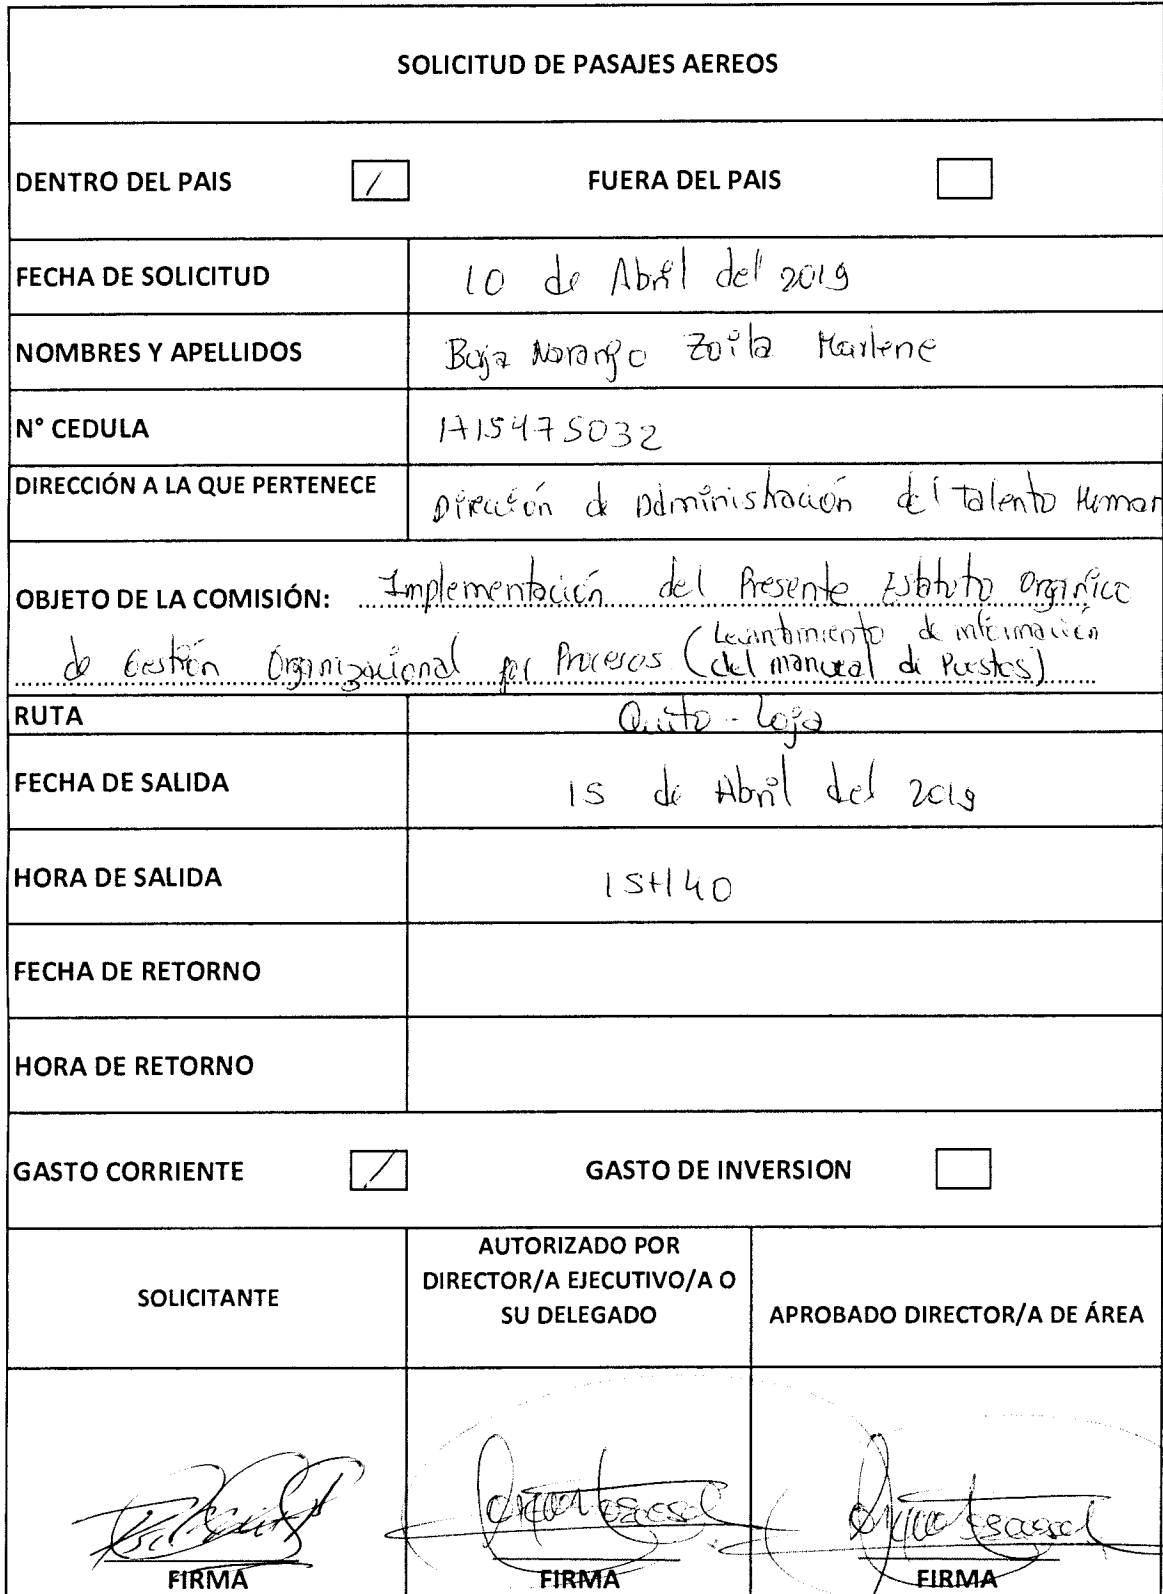 SOLICITUD DE PASAJES AEREOS
DENTRO DEL PAIS / FUERA DEL PAIS
FECHA DE SOLICITUD 10 de Abril del 2019
NOMBRES Y APELLIDOS Naranjo Zoila Marlene
N° CEDULA 1715475032
DIRECCIÓN A LA QUE PERTENECE Dirección de Administración del Talento Human
OBJETO DE LA COMISIÓN: Implementación del Presente Estatuto Orgánico
de Gestión Organizacional por Procesos (Levantamiento de información
del manual de Puestos)
RUTA Quito - Loja
FECHA DE SALIDA 15 de Abril del 2019
HORA DE SALIDA 15H40
FECHA DE RETORNO
HORA DE RETORNO
GASTO CORRIENTE / GASTO DE INVERSION
SOLICITANTE
AUTORIZADO POR
DIRECTOR/A EJECUTIVO/A O
SU DELEGADO
APROBADO DIRECTOR/A DE ÁREA
FIRMA FIRMA FIRMA